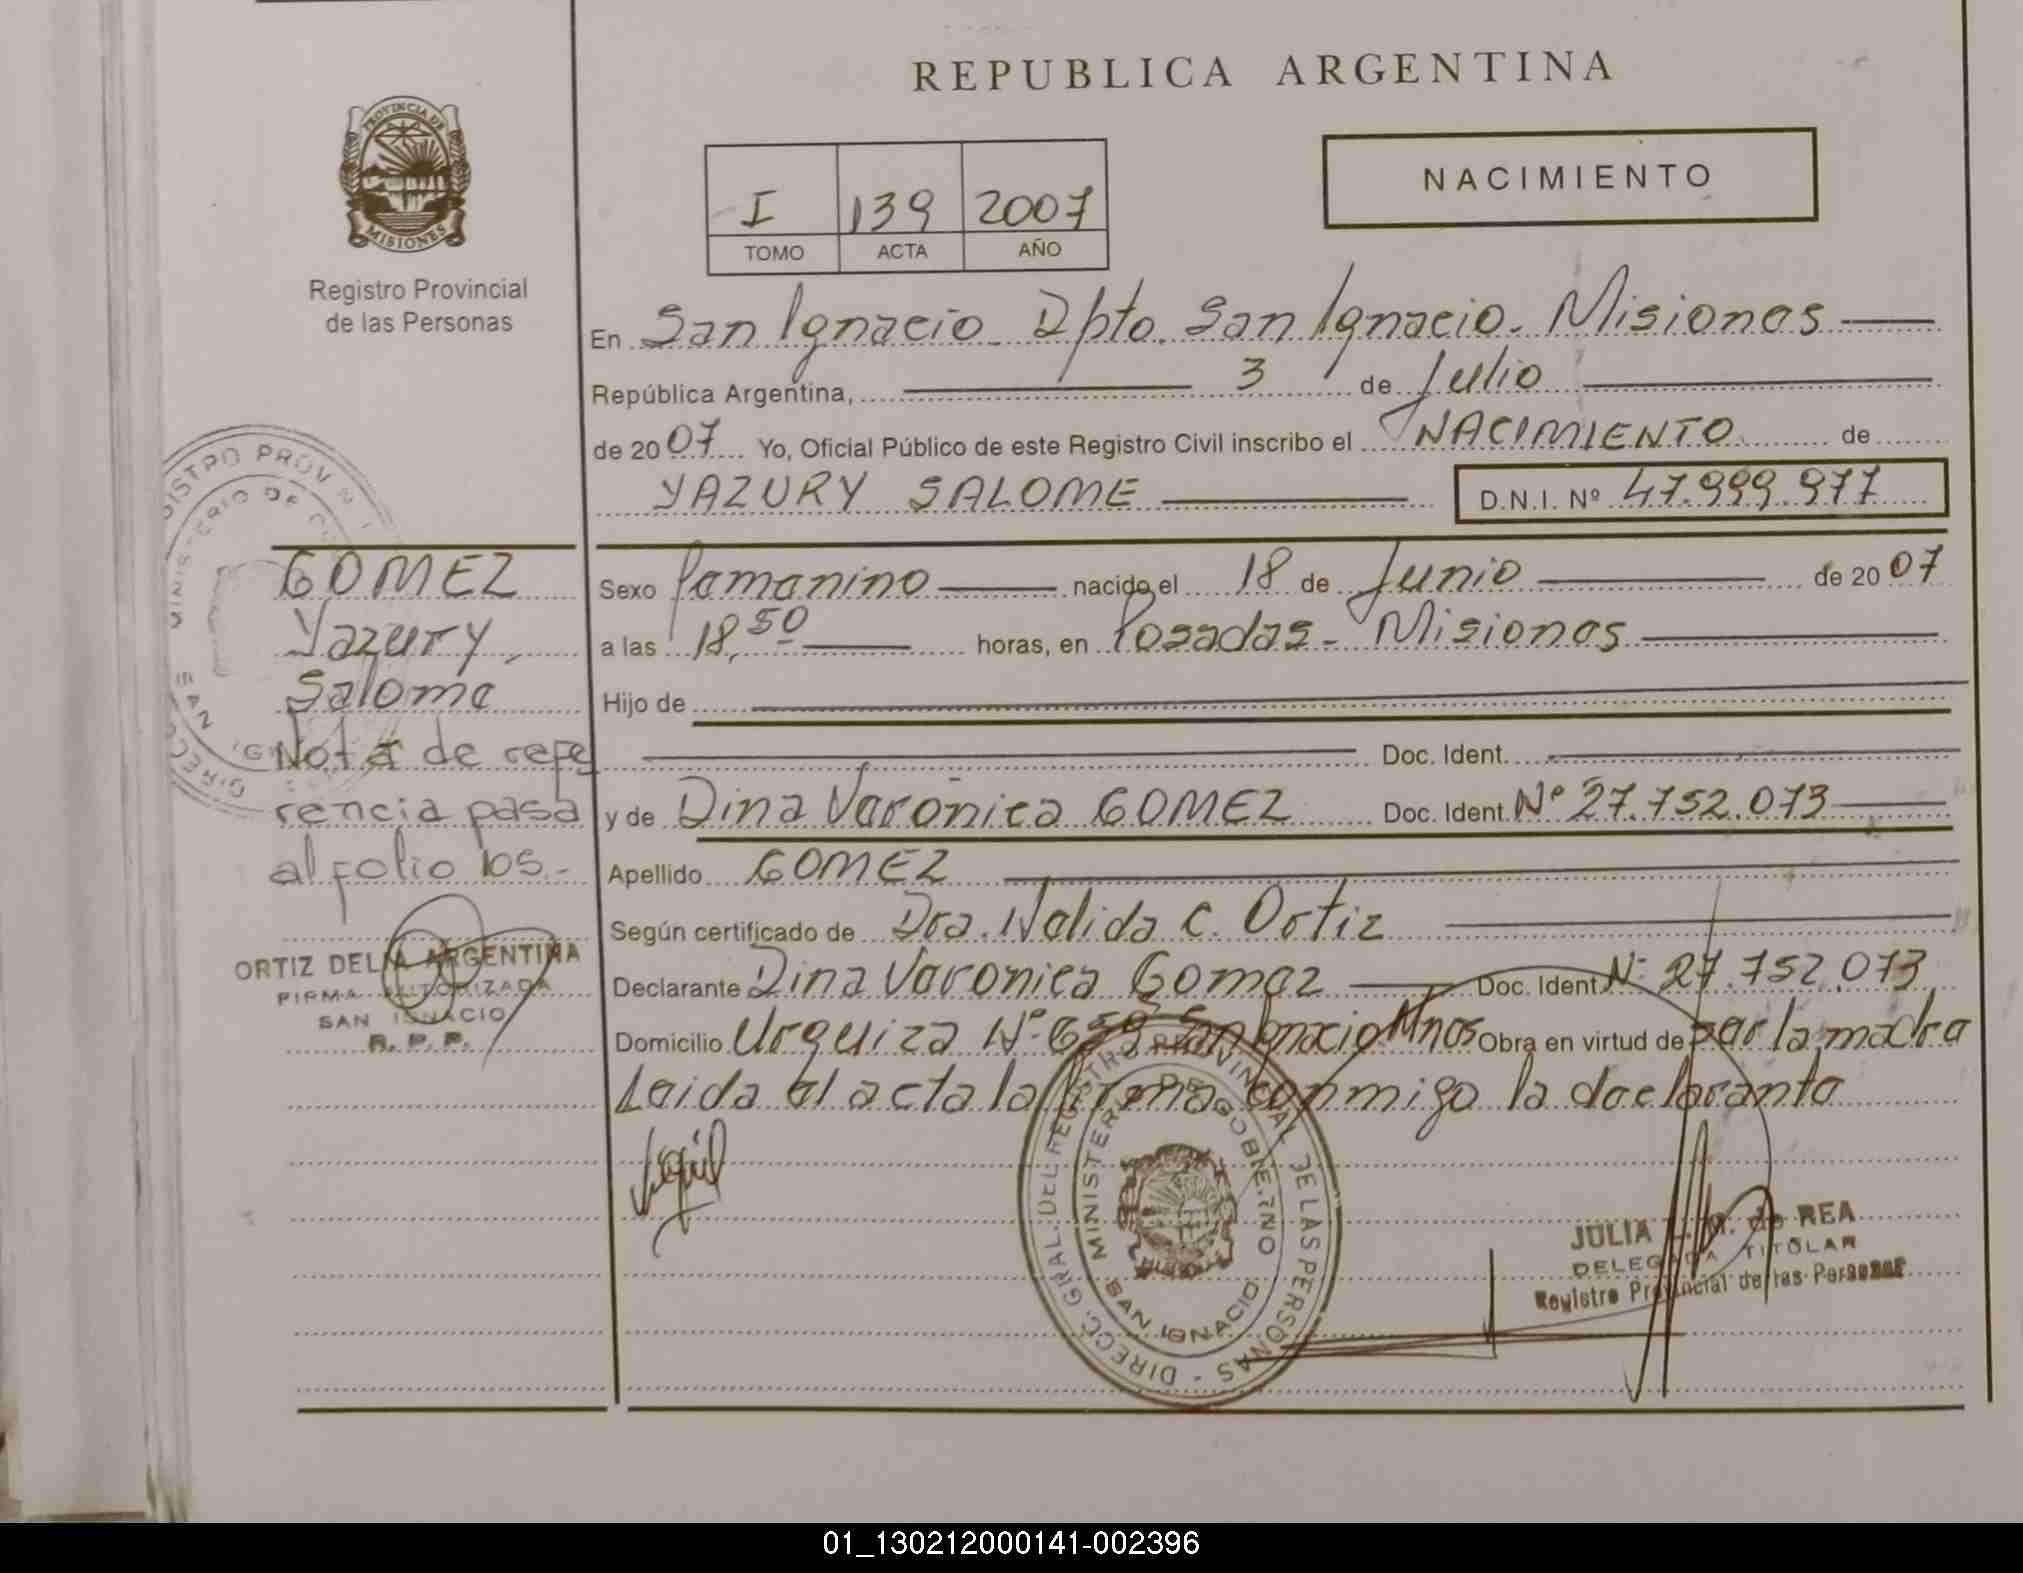 REPUBLICA ARGENTINA
PROVINCIA DE
MISIONES
Registro Provincial
de las Personas
I 139 2007
TOMO ACTA AÑO
NACIMIENTO
En San Ignacio Dpto. San Ignacio. Misiones
República Argentina, 3 de Julio
de 2007 Yo, Oficial Público de este Registro Civil inscribo el NACIMIENTO de
YAZURY SALOME D.N.I. Nº 47.999.977
GOMEZ
Yazury
Salome
Nota de refe
rencia pasa
al folio 105.-
ORTIZ DELIA ARGENTINA
FIRMA AUTORIZADA
SAN IGNACIO
R. P. P.
Sexo femenino nacido el 18 de Junio de 2007
a las 18,50 horas, en Posadas - Misiones
Hijo de
Doc. Ident.
y de Dina Verónica GOMEZ Doc. Ident. Nº 27.752.073
Apellido GOMEZ
Según certificado de Dra. Nelida C. Ortiz
Declarante Dina Veronica Gomez Doc. Ident. Nº 27.752.073
Domicilio Urquiza Nº 659 San Ignacio Mnes Obra en virtud de ser la madre
Leida el acta la firma conmigo la declarante
DIRECC. GRAL. DEL REGISTRO PROVINCIAL DE LAS PERSONAS -
MINISTERIO DE GOBIERNO
SAN IGNACIO
JULIA de REA
DELEGADA TITULAR
Registro Provincial de las Personas
01_130212000141-002396